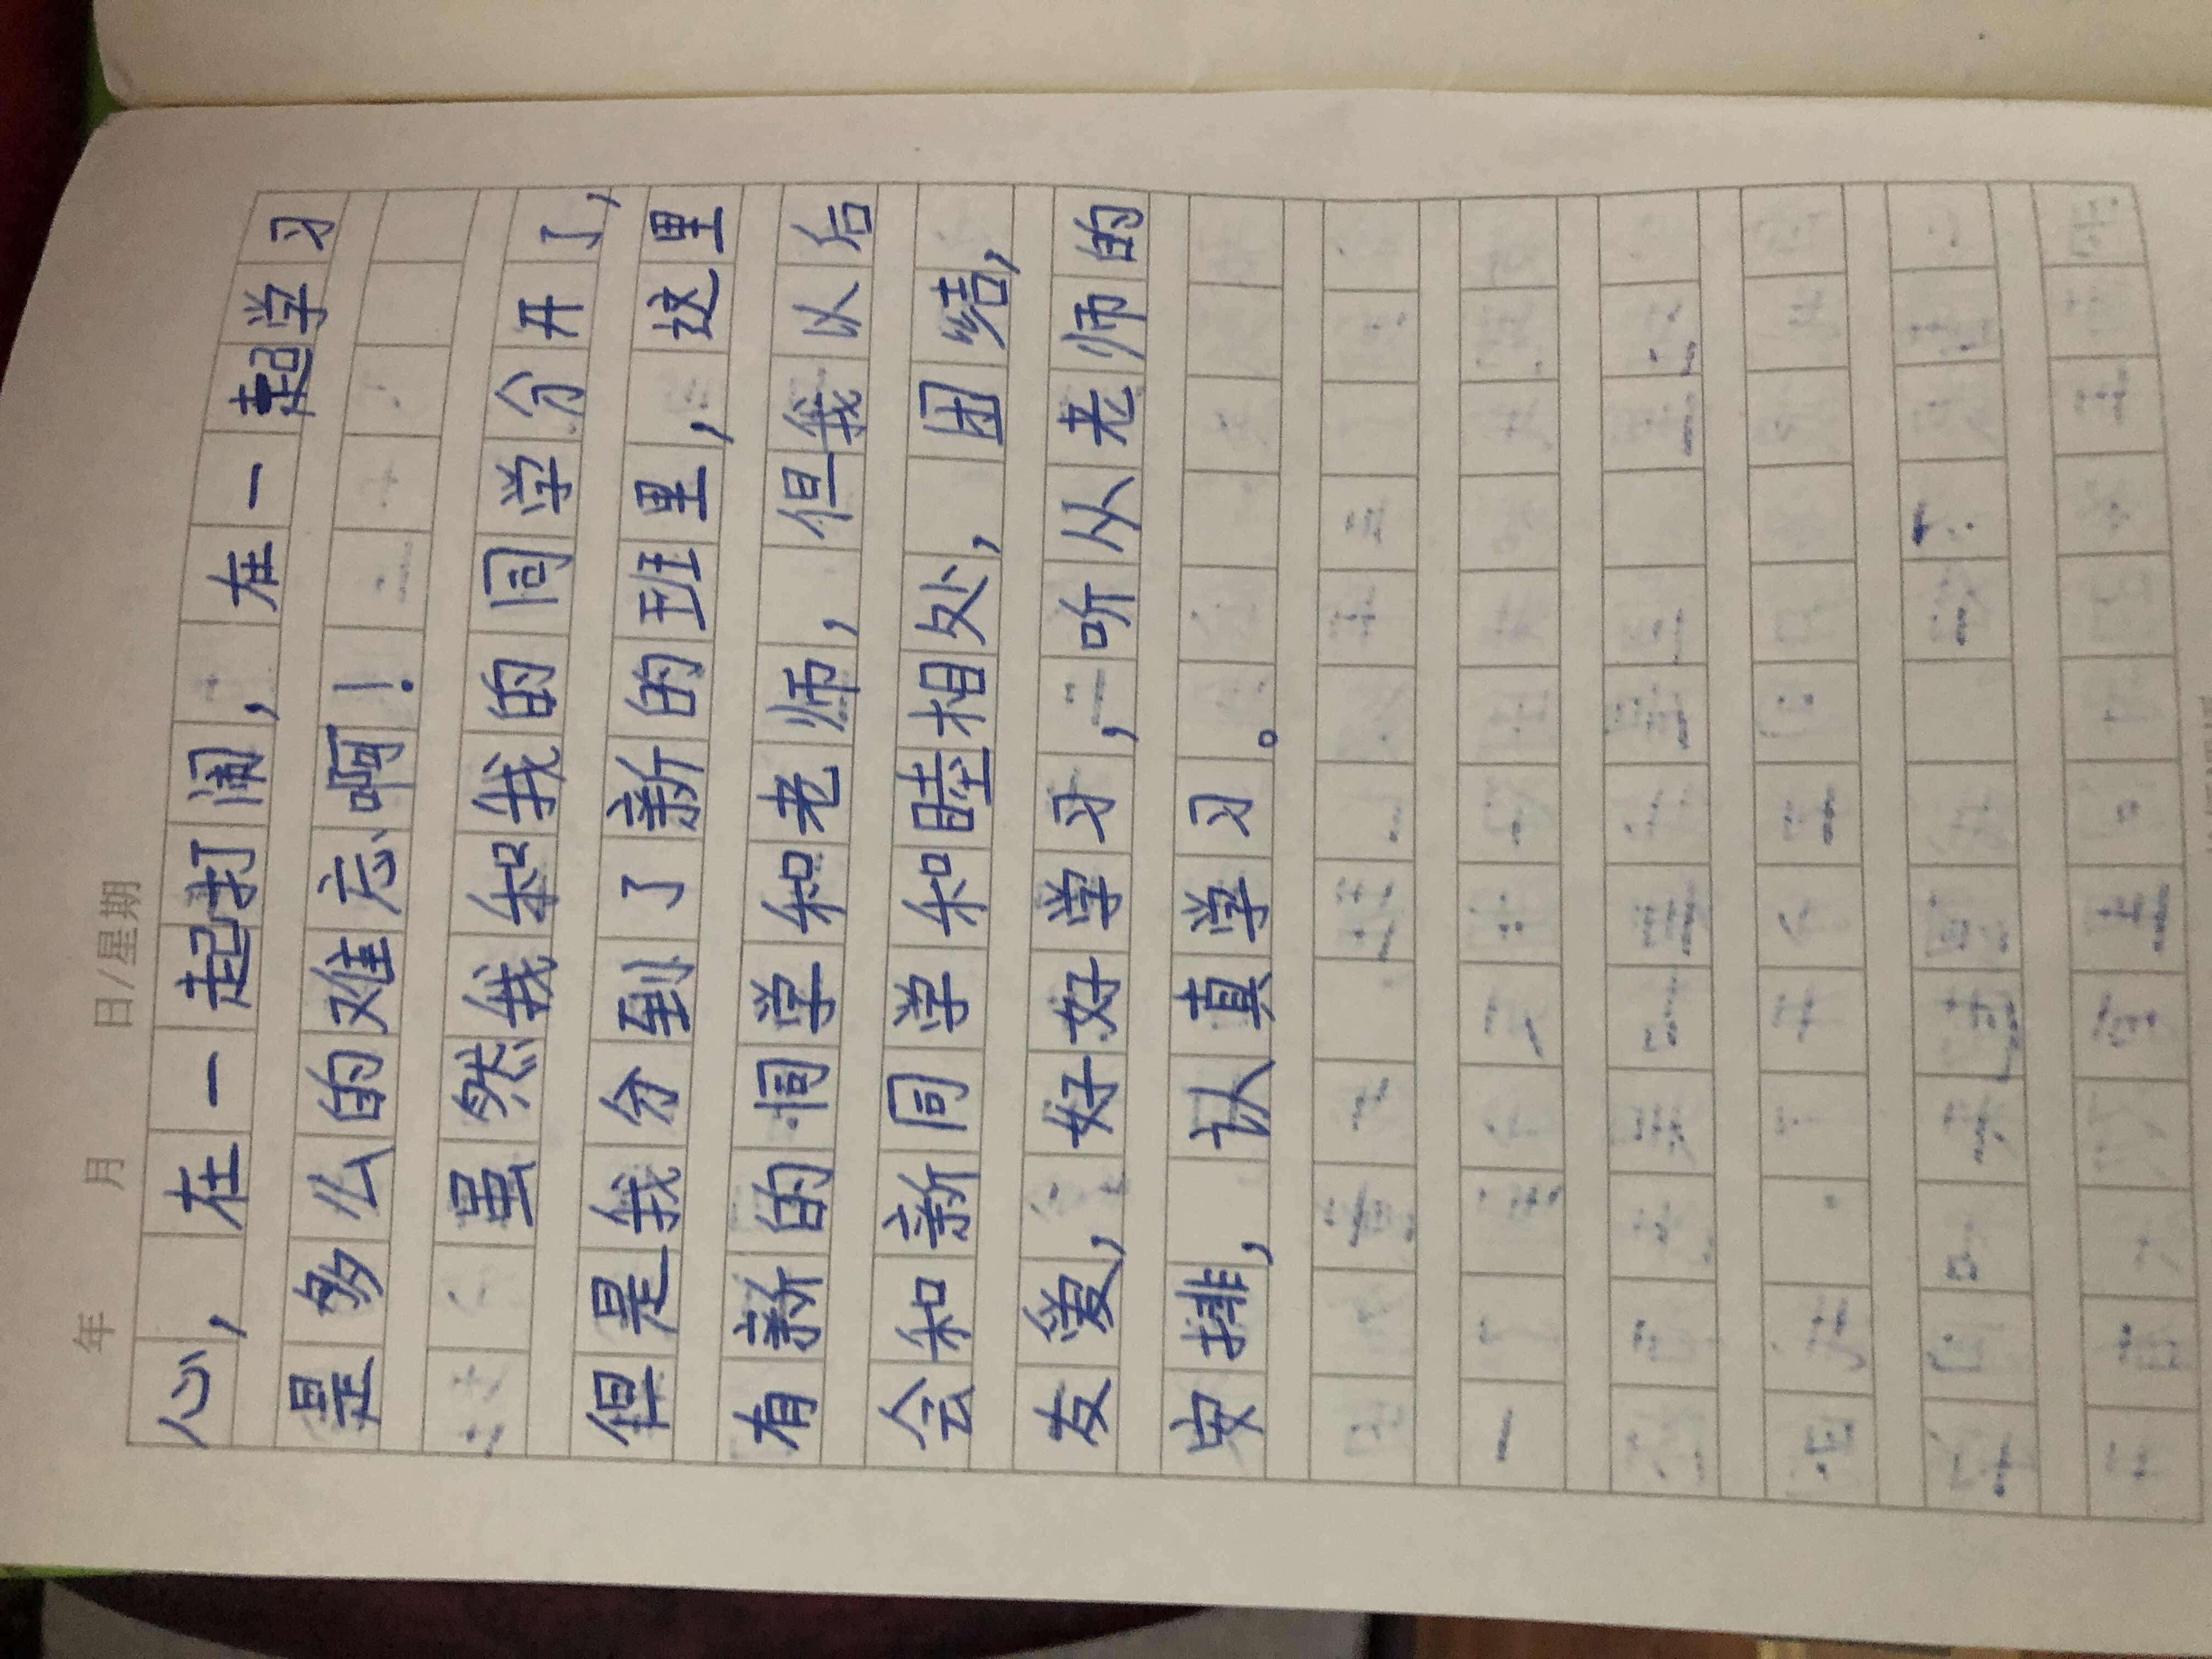 年 月 日/星期
心，在一起打闹，在一起学习
是多么的难忘啊！
虽然我和我的同学分开了，
但是我分到了新的班里，这里
有新的同学和老师，但我以后
会和新同学和睦相处，团结，
友爱，好好学习，听从老师的
安排，认真学习。